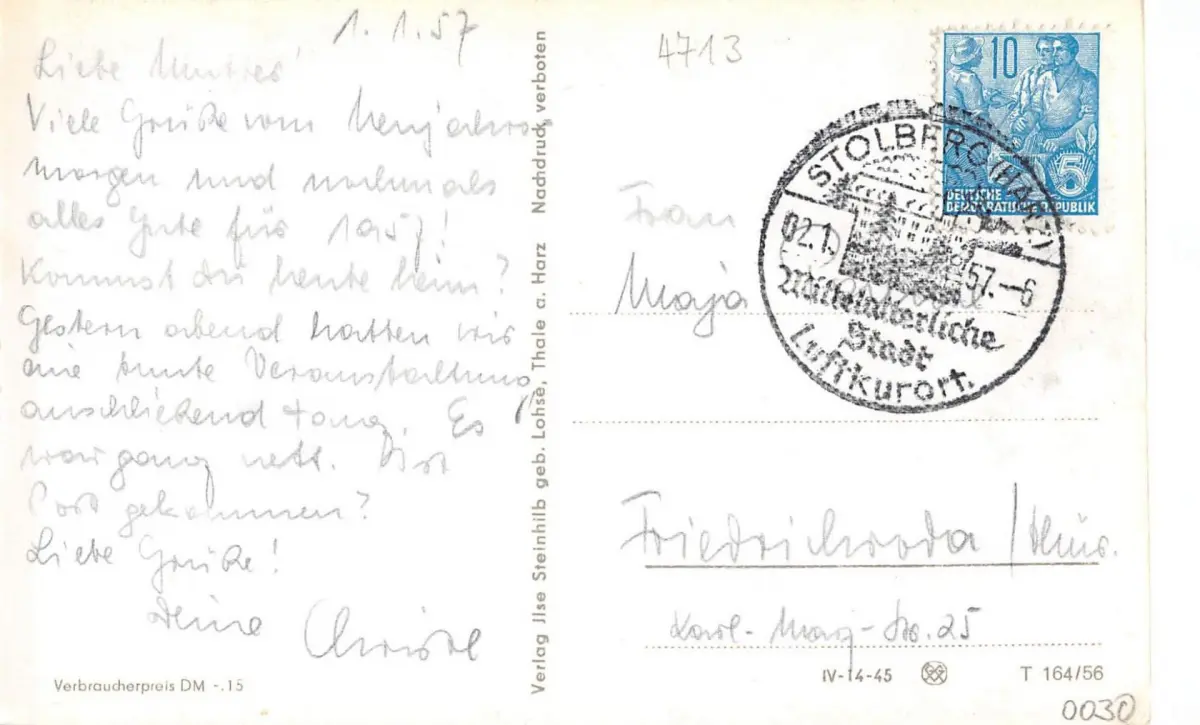 1. 1. 57
Liebe Mutter!
Viele Grüße vom Neujahrs-
morgen und nochmals
alles Gute für 1957!
Kommst du heute heim?
Gestern abend hatten wir
eine bunte Veranstaltung,
anschließend Tanz. Es
war ganz nett. Ist
Post gekommen?
Liebe Grüße!
Deine Christel
Verbraucherpreis DM -.15
Verlag Jlse Steinhilb geb. Lohse, Thale a. Harz Nachdruck verboten
4713
10
5
DEUTSCHE
DEMOKRATISCHE REPUBLIK
STOLBERG (HARZ)
02.1. 57.-6
Mittelalterliche
Stadt
Luftkurort.
Frau
Maja
Friedrichroda / Thür.
Karl-Marx-Str. 25
IV-14-45
T 164/56
0030